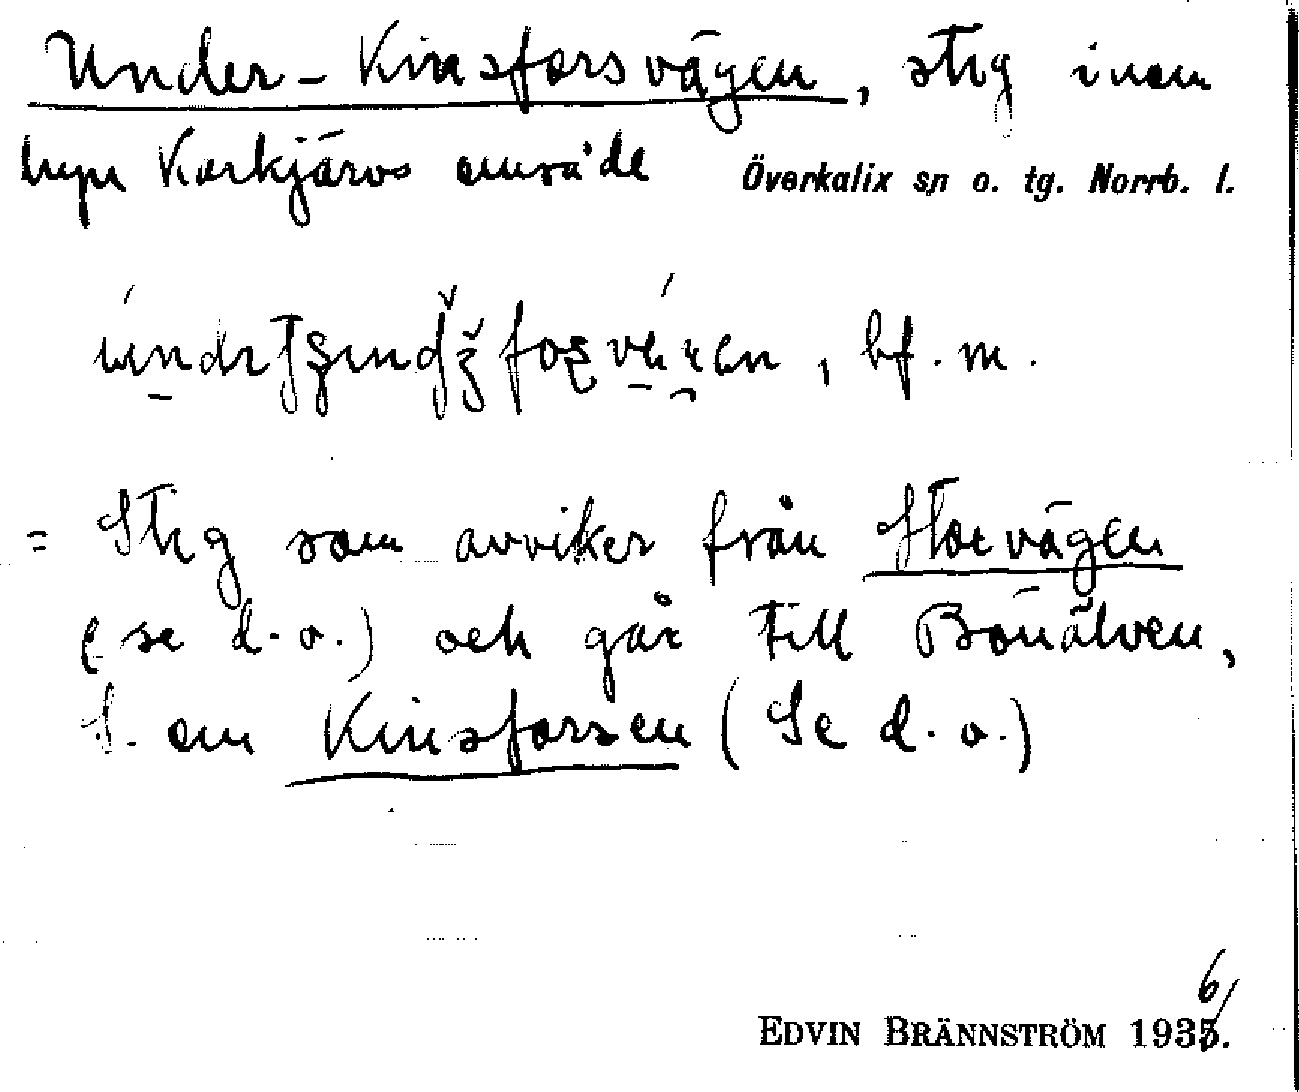 Under-Kinsforsvägen, stig inom
byn Korkjärvs område Överkalix sn o. tg. Norrb. l.
, bf. m.
= Stig som avviker från Storvägen
(se d. o.) och går till Bönälven,
S. om Kinsforsen (Se d. o.)
6/
EDVIN BRÄNNSTRÖM 1935.